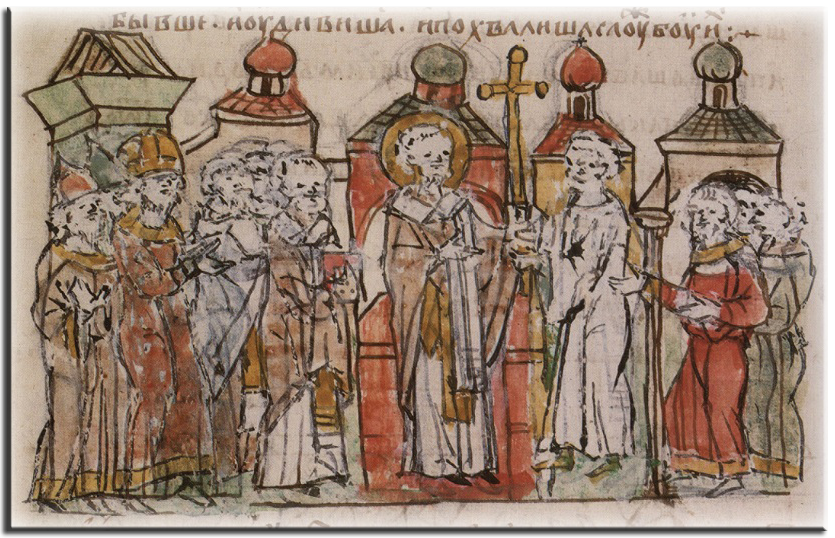 бывше · ноудивиша . ипохвалиша слоуб оу и :